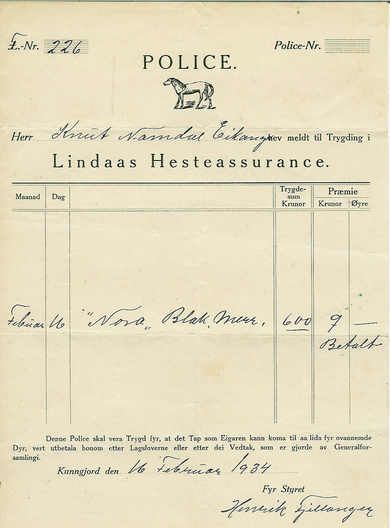 L.-Nr. 226
Police-Nr.
POLICE.
Herr Knut Namdal Eikanger ev meldt til Trygding i
Lindaas Hesteassurance.
Maanad Dag Trygde-sum Krunor Præmie Krunor Øyre
Februar 16 "Nora" Blak, Merr. 600 9 —
Betalt
Denne Police skal vera Trygd fyr, at det Tap som Eigaren kann koma til aa lida fyr ovannemde
Dyr, vert utbetala honom etter Lagsloverne eller etter dei Vedtak, som er gjorde av Generalfor-
samlingi.
Kunngjord den 16 Februar 1934
Fyr Styret
Henrik Fjellanger